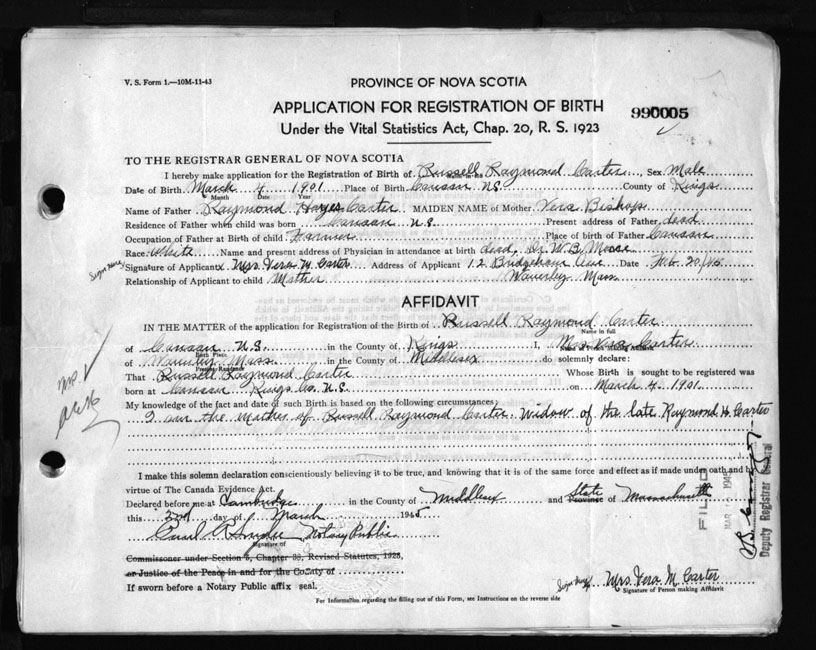 V. S. Form 1.—10M-11-43
PROVINCE OF NOVA SCOTIA
APPLICATION FOR REGISTRATION OF BIRTH
990005
Under the Vital Statistics Act, Chap. 20, R. S. 1923
TO THE REGISTRAR GENERAL OF NOVA SCOTIA
I hereby make application for the Registration of Birth of Russell Raymond Carter, Sex Male
Date of Birth March 4 1901 Place of Birth Canaan N.S. County of Kings
Month Date Year
Name of Father Raymond Hayes Carter MAIDEN NAME of Mother Vera Bishop
Residence of Father when child was born Canaan N.S. Present address of Father dead
Occupation of Father at Birth of child Farmer Place of birth of Father Canaan
Race White Name and present address of Physician in attendance at birth dead, Dr W.B. Moore
Sign Here Signature of Applicant x Mrs. Vera M. Carter Address of Applicant 12 Ave Date Feb. 20/45
Relationship of Applicant to child Mother Waverley Mass
AFFIDAVIT
IN THE MATTER of the application for Registration of the Birth of Russell Raymond Carter
Name in full
of Canaan N.S. in the County of Kings I, Mrs Vera Carter
Birth Place
of Mass. in the County of Middlesex do solemnly declare:
Present Residence
That Russell Raymond Carter Whose Birth is sought to be registered was
born at Canaan Kings Co. N.S. on March 4, 1901.
My knowledge of the fact and date of such Birth is based on the following circumstances:
I am the Mother of Russell Raymond Carter. Widow of the late Raymond H. Carter
I make this solemn declaration conscientiously believing it to be true, and knowing that it is of the same force and effect as if made under oath and by
virtue of The Canada Evidence Act.
Declared before me at Cambridge in the County of Middlesex and State Province of Massachusetts
this 2nd day of March 1945
Notary Public
Signature of
Commissioner under Section 5, Chapter 39, Revised Statutes, 1923,
or Justice of the Peace in and for the County of
If sworn before a Notary Public affix seal.
Sign Here Mrs. Vera M. Carter
Signature of Person making Affidavit
For Information regarding the filling out of this Form, see Instructions on the reverse side
FILED
MAR 1945
Deputy Registrar General